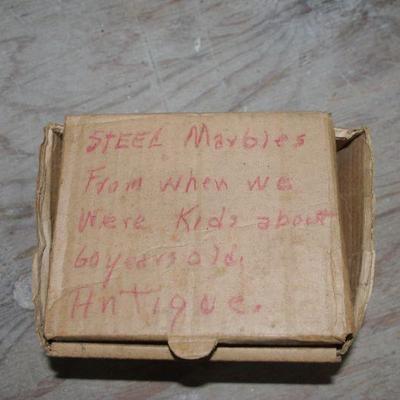 STEEL Marbles
From when we
Were Kids about
60 years old,
Antique.